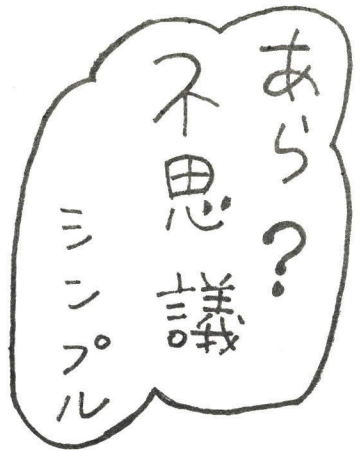 あら?
不思議
シンプル